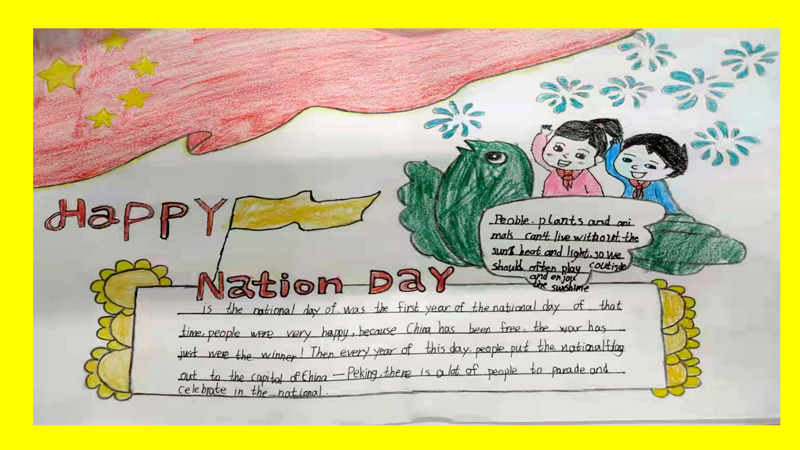 Happy
Nation Day
People. plants and ani
mals can't live without the
sun's heat and light. so we
should often play coutside
and enjoy
the sunshine
is the national day of. was the first year of the national day of that
time, people were very happy, because China has been free. the war has
just were the winner! Then every year of this day. people put the national flag
out to the capital of China — Peking. there is a lot of people to parade and
celebrate in the national.